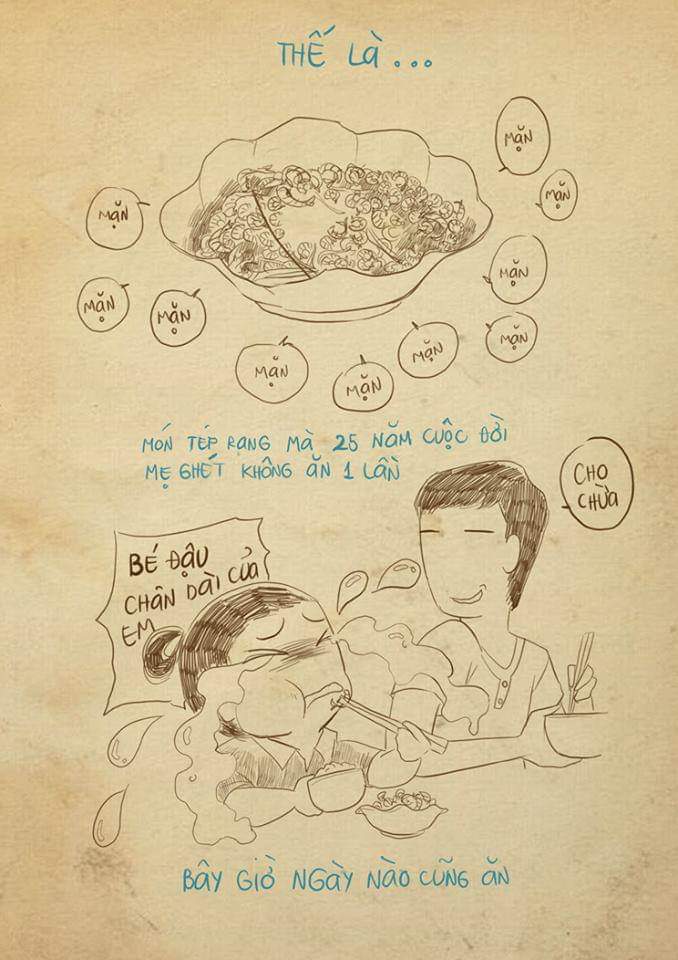 THẾ LÀ...
MẶN
MẶN
MẶN
MẶN
MẶN
MẶN
MẶN
MẶN
MẶN
MẶN
MÓN TÉP RANG MÀ 25 NĂM CUỘC ĐỜI
MẸ GHÉT KHÔNG ĂN 1 LẦN
CHO
CHỪA
BÉ ĐẬU
CHÂN DÀI CỦA
EM
BÂY GIỜ NGÀY NÀO CŨNG ĂN